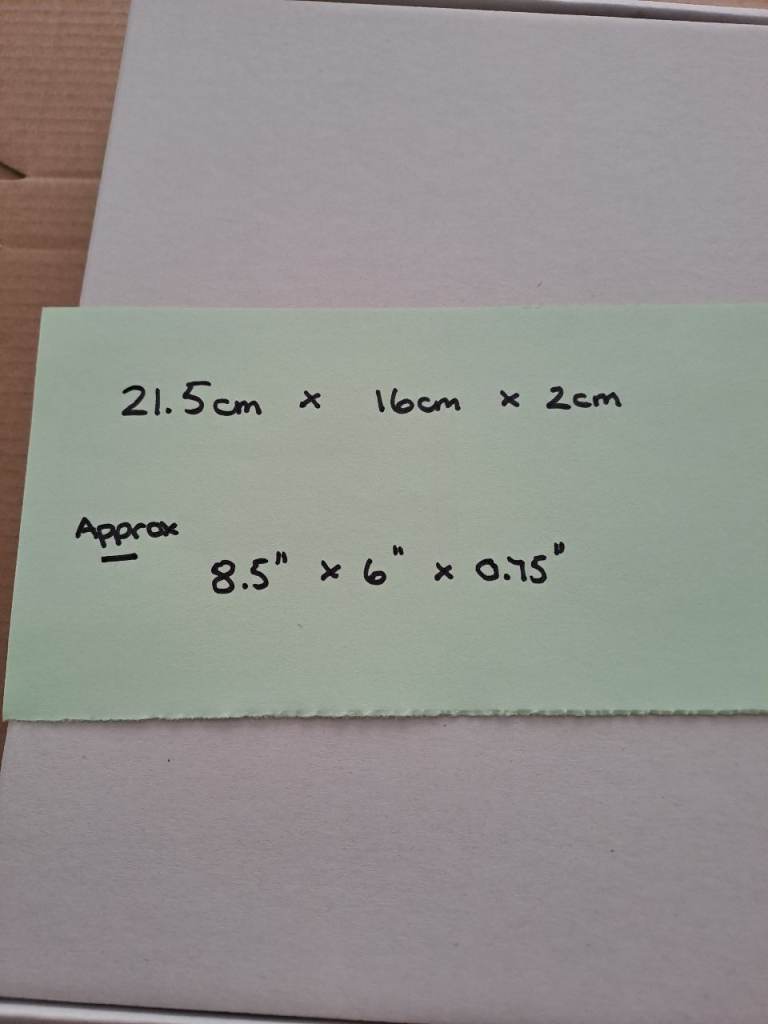 21.5cm x 16cm x 2cm
Approx
8.5" x 6" x 0.75"